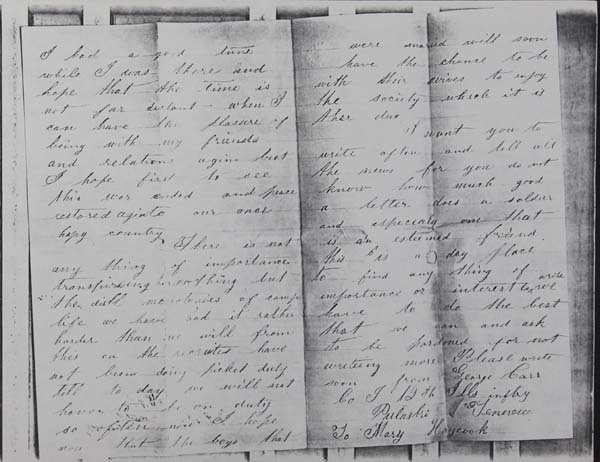 I had a good time
while I was there and
hope that the time is
not far distant when I
can have the plasure of
being with my friends
and relations agin but
I hope first to see
this war ended and peace
restored aginto our once
happy country
There is not
any thing of importance
transpireing here nothing but
the dull monotonies of camp
life we have had it rather
harder than we will from
this on the recruites have
not been doing picket duty
till to day we will not
haven to be on duty
so often now I hope
now that the boys that
were maried will soon
have the chance to be
with their wives to enjoy
the society which it is
ther due
I want you to
write often and tell all
the news for you do not
know how much good
a letter does a soldier
and especialy one that
is an esteemed friend
this is a day place
to find any thing of
importance or interest to write we
have to do the best
that we can and ask
to be pardoned for not
writeing more Please write
soon from George Carr
Co I 12th Ills infty
Pulaski Tennessee
To Mary Haycook